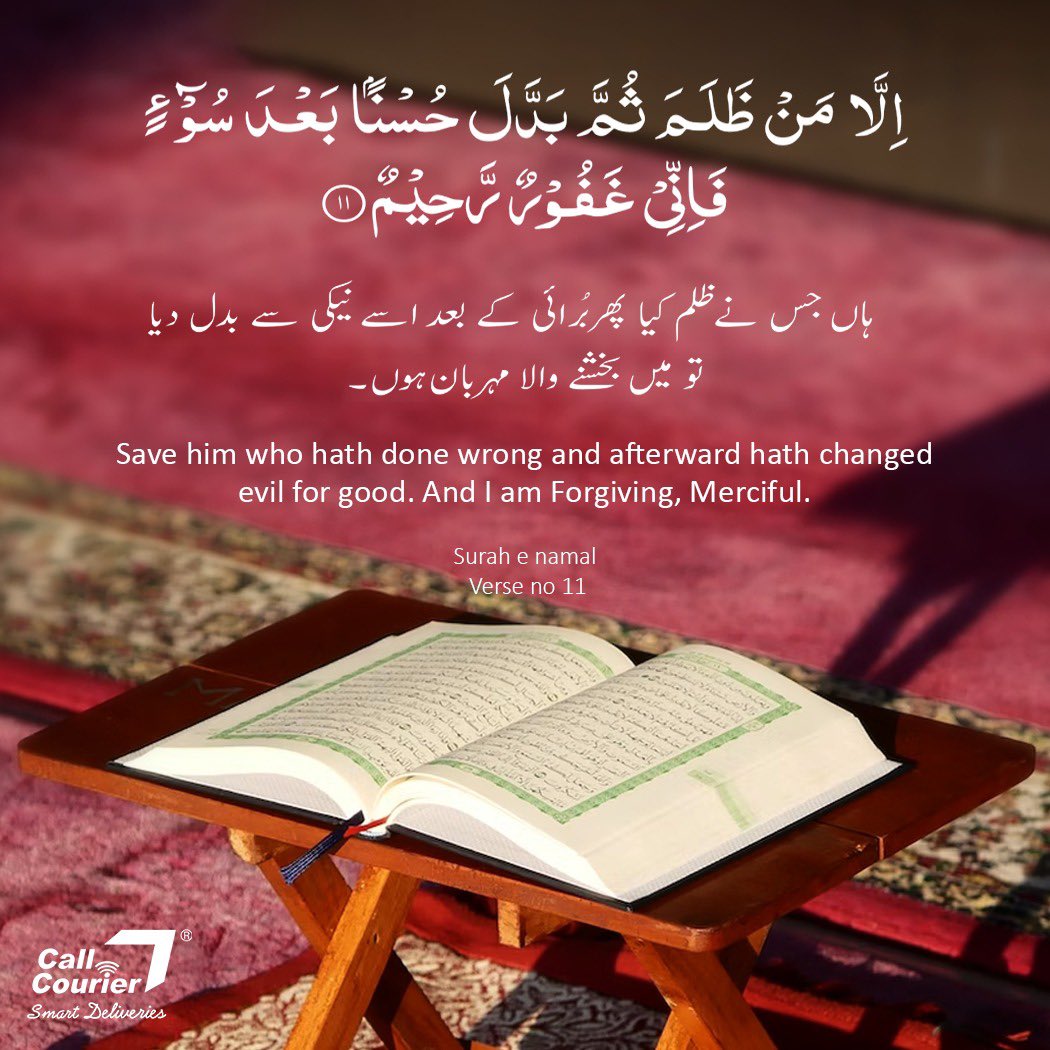 اِلَّا مَنْ ظَلَمَ ثُمَّ بَدَّلَ حُسْنًۢا بَعْدَ سُوْٓءٍ
فَاِنِّیْ غَفُوْرٌ رَّحِیْمٌ ۝۱۱
ہاں جس نے ظلم کیا پھر بُرائی کے بعد اسے نیکی سے بدل دیا
تو میں بخشنے والا مہربان ہوں۔
Save him who hath done wrong and afterward hath changed
evil for good. And I am Forgiving, Merciful.
Surah e namal
Verse no 11
Call
Courier ®
Smart Deliveries